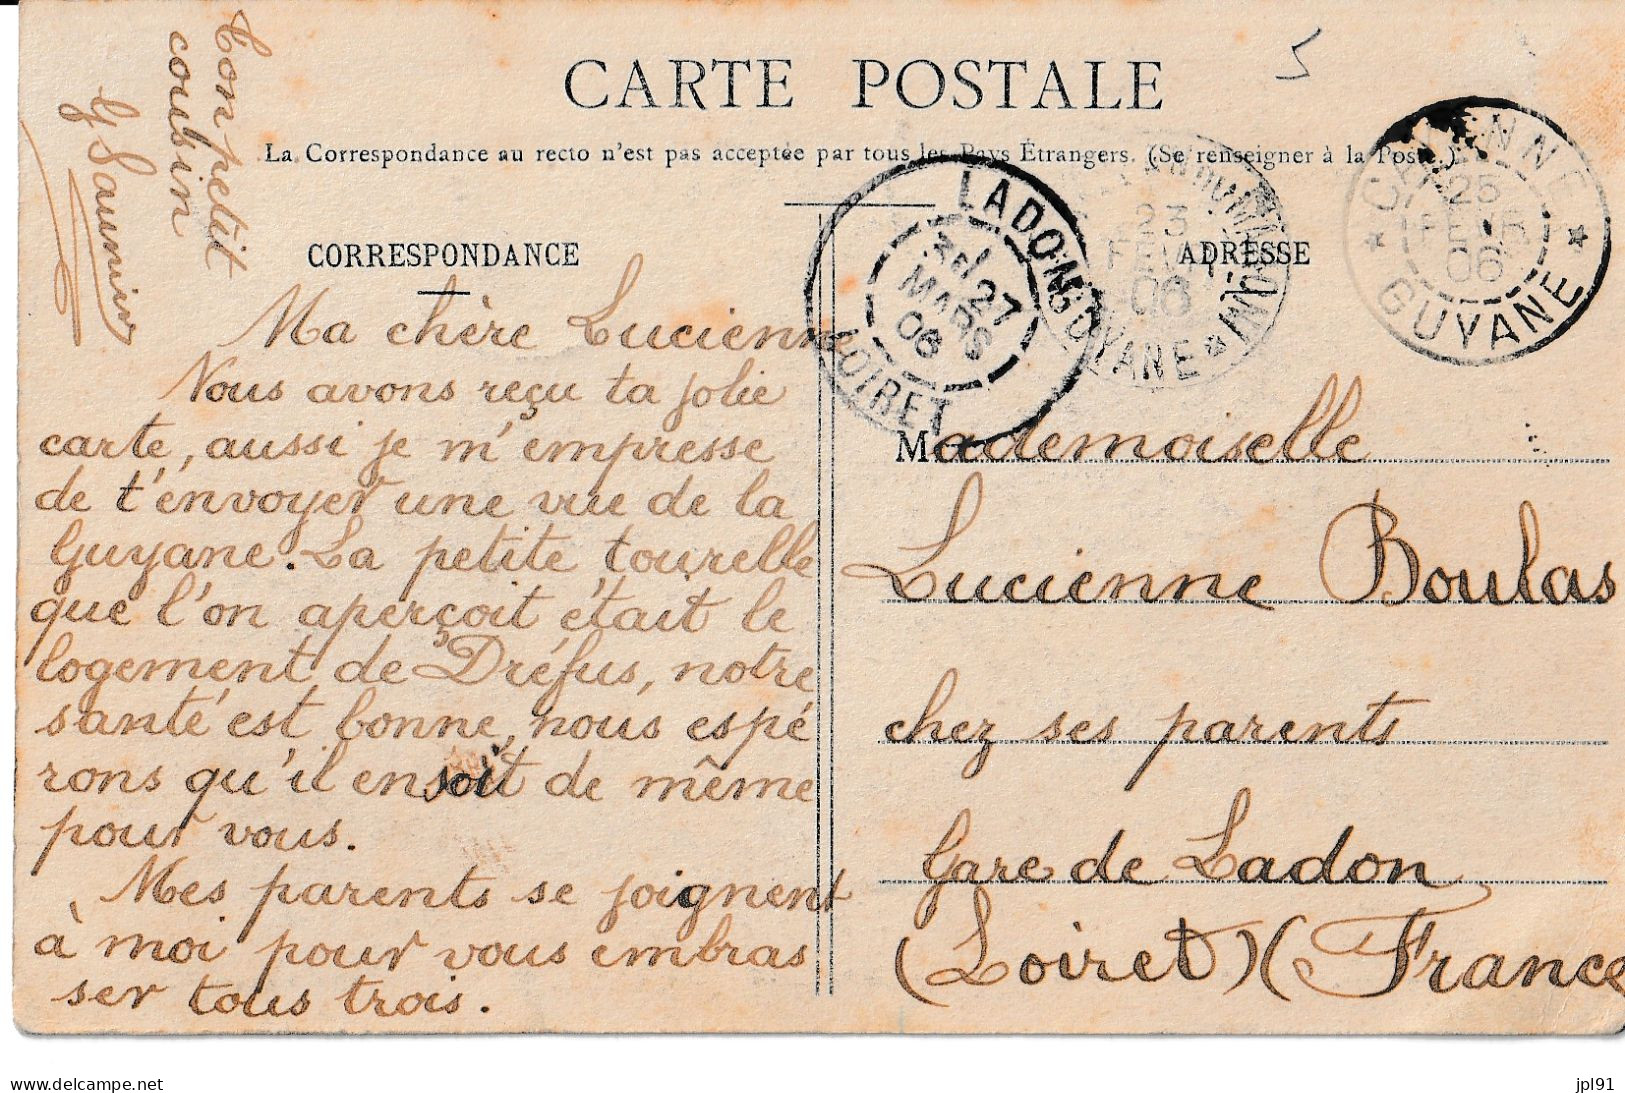 CARTE POSTALE
La Correspondance au recto n'est pas acceptée par tous les Pays Étrangers. (Se renseigner à la Poste.)
CORRESPONDANCE
Ma chère Lucienne
Nous avons reçu ta jolie
carte, aussi je m'empresse
de t'envoyer une vue de la
Guyane. La petite tourelle
que l'on aperçoit était le
logement de Dréfus, notre
santé est bonne, nous espé
rons qu'il en soit de même
pour vous.
Mes parents se joignent
à moi pour vous embras
ser tous trois.
Ton petit
cousin
G Saunier
ADRESSE
Mademoiselle
Lucienne Boulas
chez ses parents
Gare de Ladon
(Loiret) (France
LADON
27
MARS
06
LOIRET
23
FEVR
06
GUYANE
CAYENNE
25
FEVR
06
GUYANE
delcampe.net
jpl91